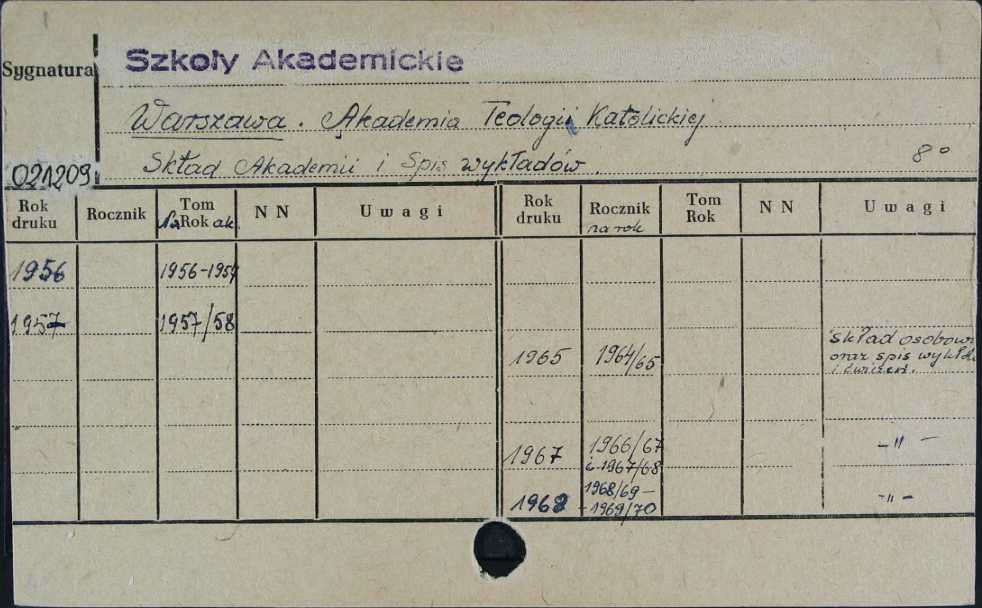 Szkoły Akademickie
Sygnatura
Warszawa. Akademia Teologii Katolickiej
Skład Akademii i Spis wykładów. 8°
021209
Rok druku Rocznik Tom Rok NN Uwagi
Na ak.
1956 1956-1957
1957 1957/58
Rok druku Rocznik Tom Rok NN Uwagi
na rok
1965 1964/65 skład osobowy
oraz spis wykła
i ćwiczeń.
1967 1966/67 -"-
i 1967/68
1968 1968/69- -"-
-1969/70